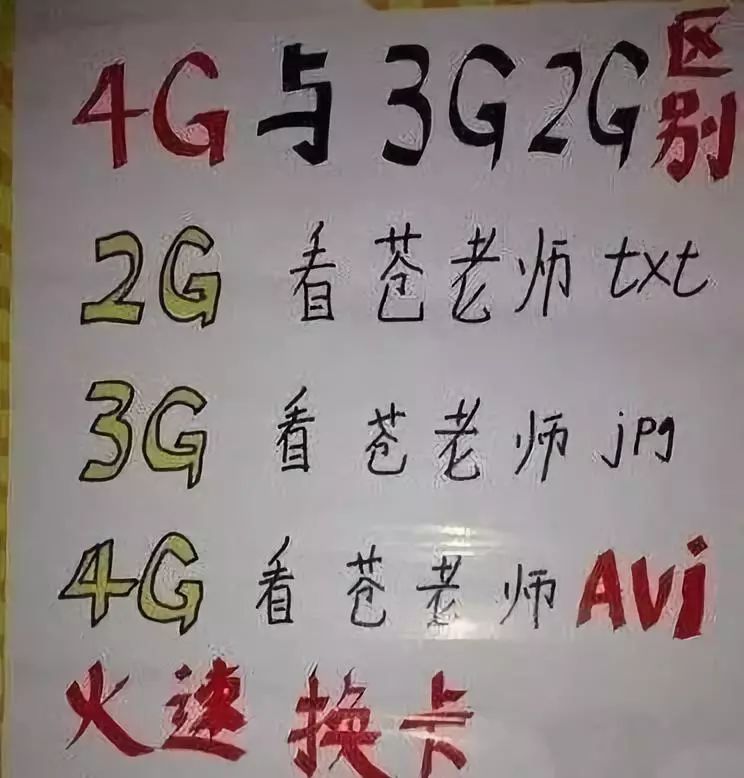 4G与3G2G区别
2G 看苍老师 txt
3G 看苍老师 jpg
4G 看苍老师 Avi
火速换卡